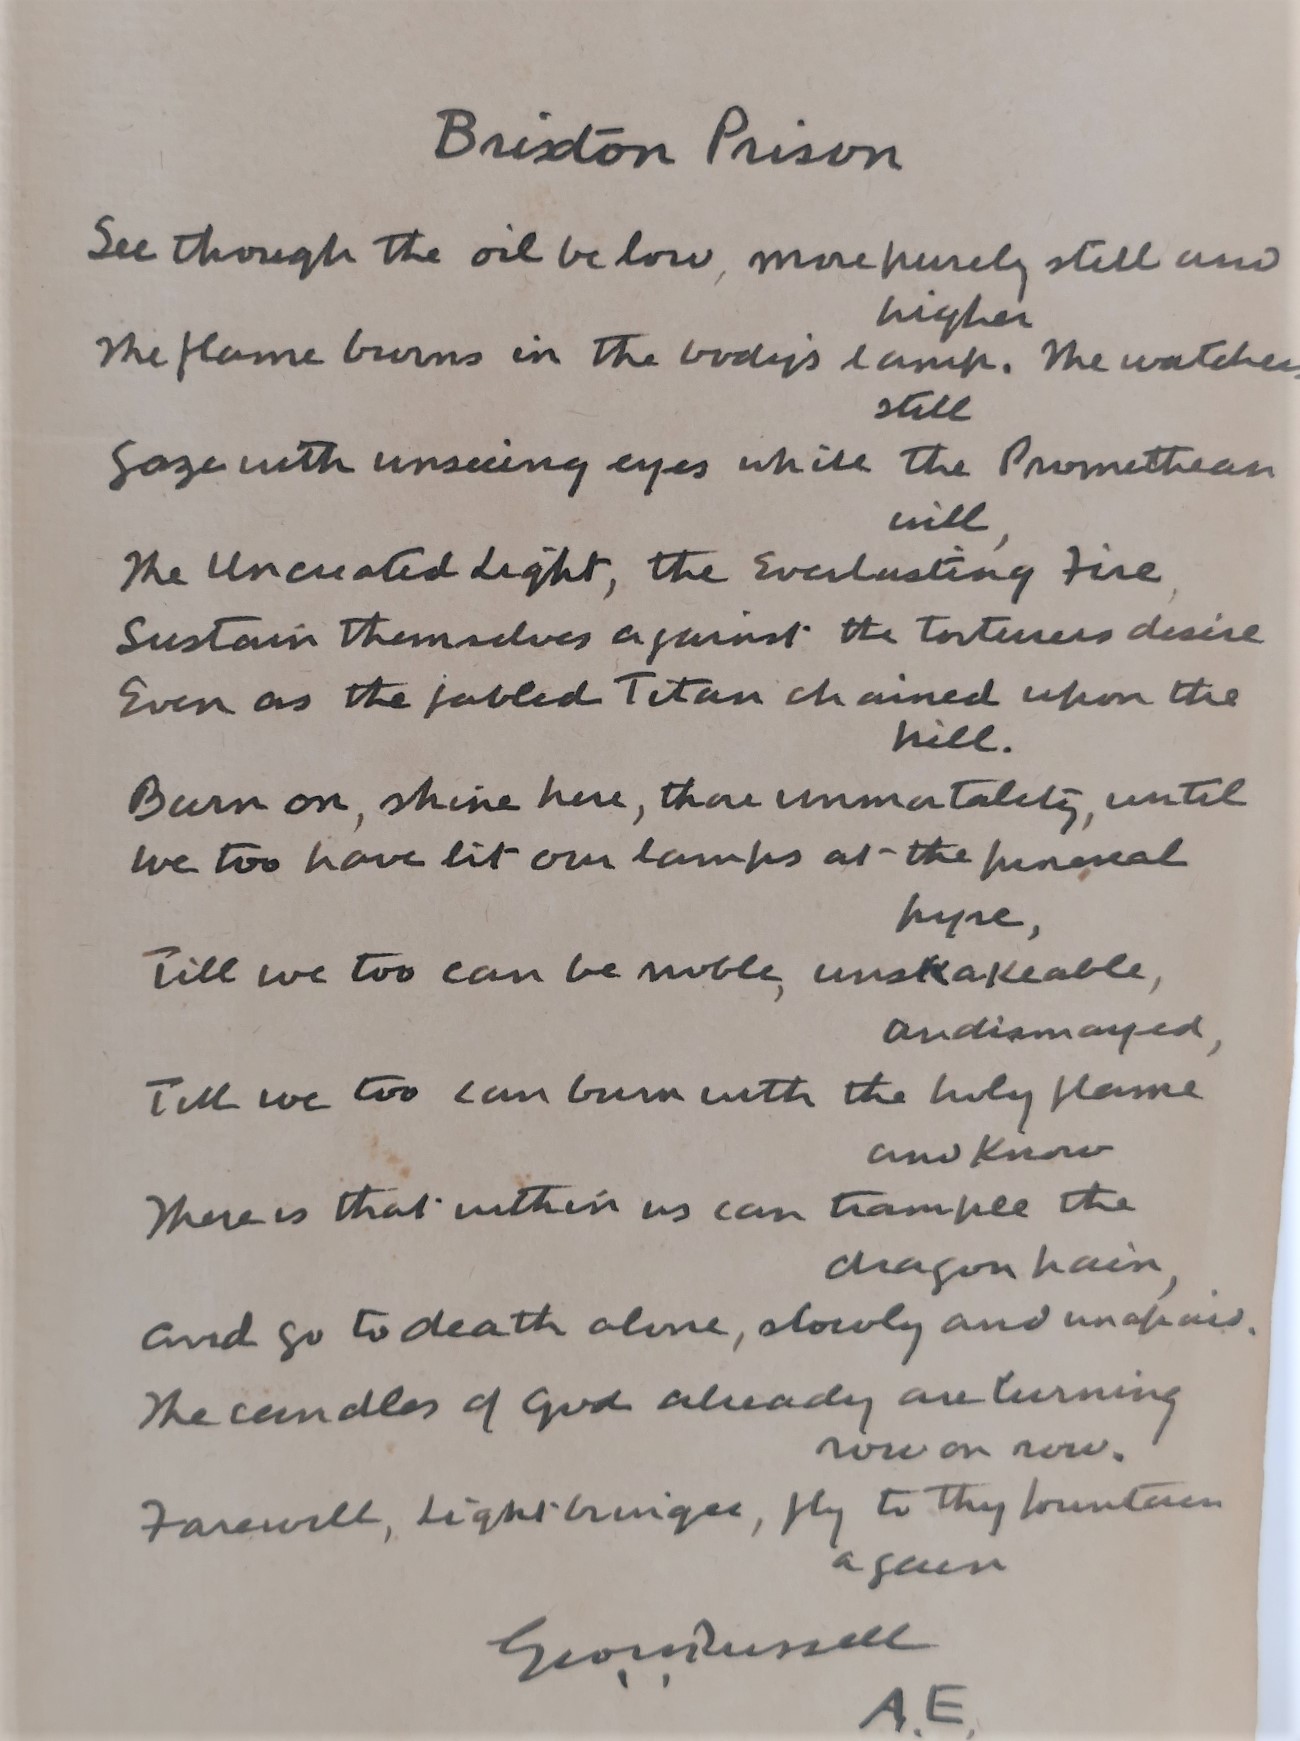 Brixton Prison
See though the oil be low, more purely still and
higher
The flame burns in the body's lamp. The watchers
still
Gaze with unseeing eyes while the Promethean
will,
The Uncreated Light, the Everlasting Fire,
Sustain themselves against the torturers desire
Even as the fabled Titan chained upon the
hill.
Burn on, shine here, thou immortality, until
We too have lit our lamps at the funeral
pyre,
Till we too can be noble, unshakeable,
undismayed,
Till we too can burn with the holy flame
and know
There is that within us can trample the
dragon pain,
And go to death alone, slowly and unafraid.
The candles of God already are burning
row on row.
Farewell, Lightbringer, fly to thy fountain
again
George Russell
A.E.